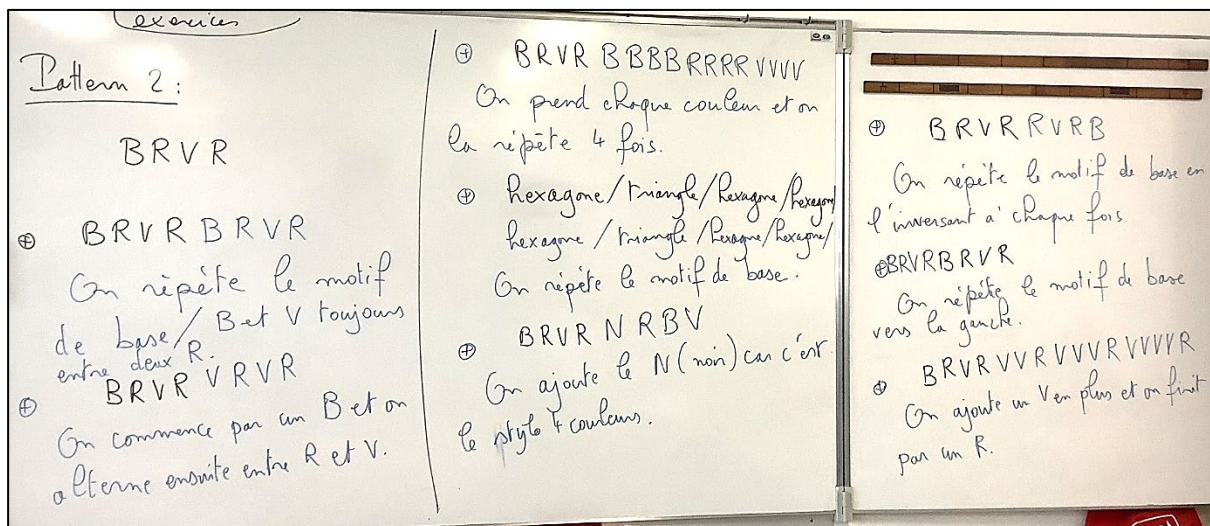 exercices
Pattern 2 :
BRVR
⊕ BRVR BRVR
On répète le motif
de base/ B et V toujours
entre deux R.
⊕ BRVR VRVR
On commence par un B et on
alterne ensuite entre R et V.
⊕ BRVR BBBB RRRR VVVV
On prend chaque couleur et on
la répète 4 fois.
⊕ hexagone/triangle/hexagone/hexagone
hexagone/triangle/hexagone/hexagone/
On répète le motif de base.
⊕ BRVR N R B V
On ajoute le N (noir) car c'est
le stylo 4 couleurs.
⊕ BRVR RVRB
On répète le motif de base en
l'inversant à chaque fois.
⊕ BRVRBRVR
On répète le motif de base
vers la gauche.
⊕ BRVR VVR VVVR VVVVR
On ajoute un V en plus et on finit
par un R.